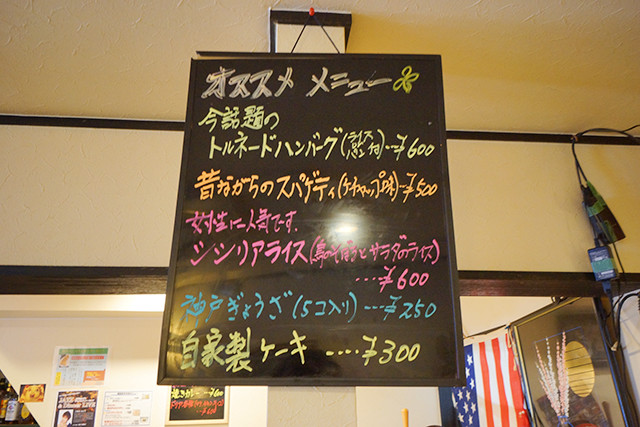 オススメ メニュー
今話題の
トルネードハンバーグ(ライス付)‥‥¥600
昔ながらのスパゲティ(ケチャップ味)‥¥500
女性に人気です.
シシリアライス(鳥のそぼろとサラダのライス)
‥‥¥600
神戸ぎょうざ(5コ入り)‥‥¥250
自家製ケーキ‥‥‥¥300